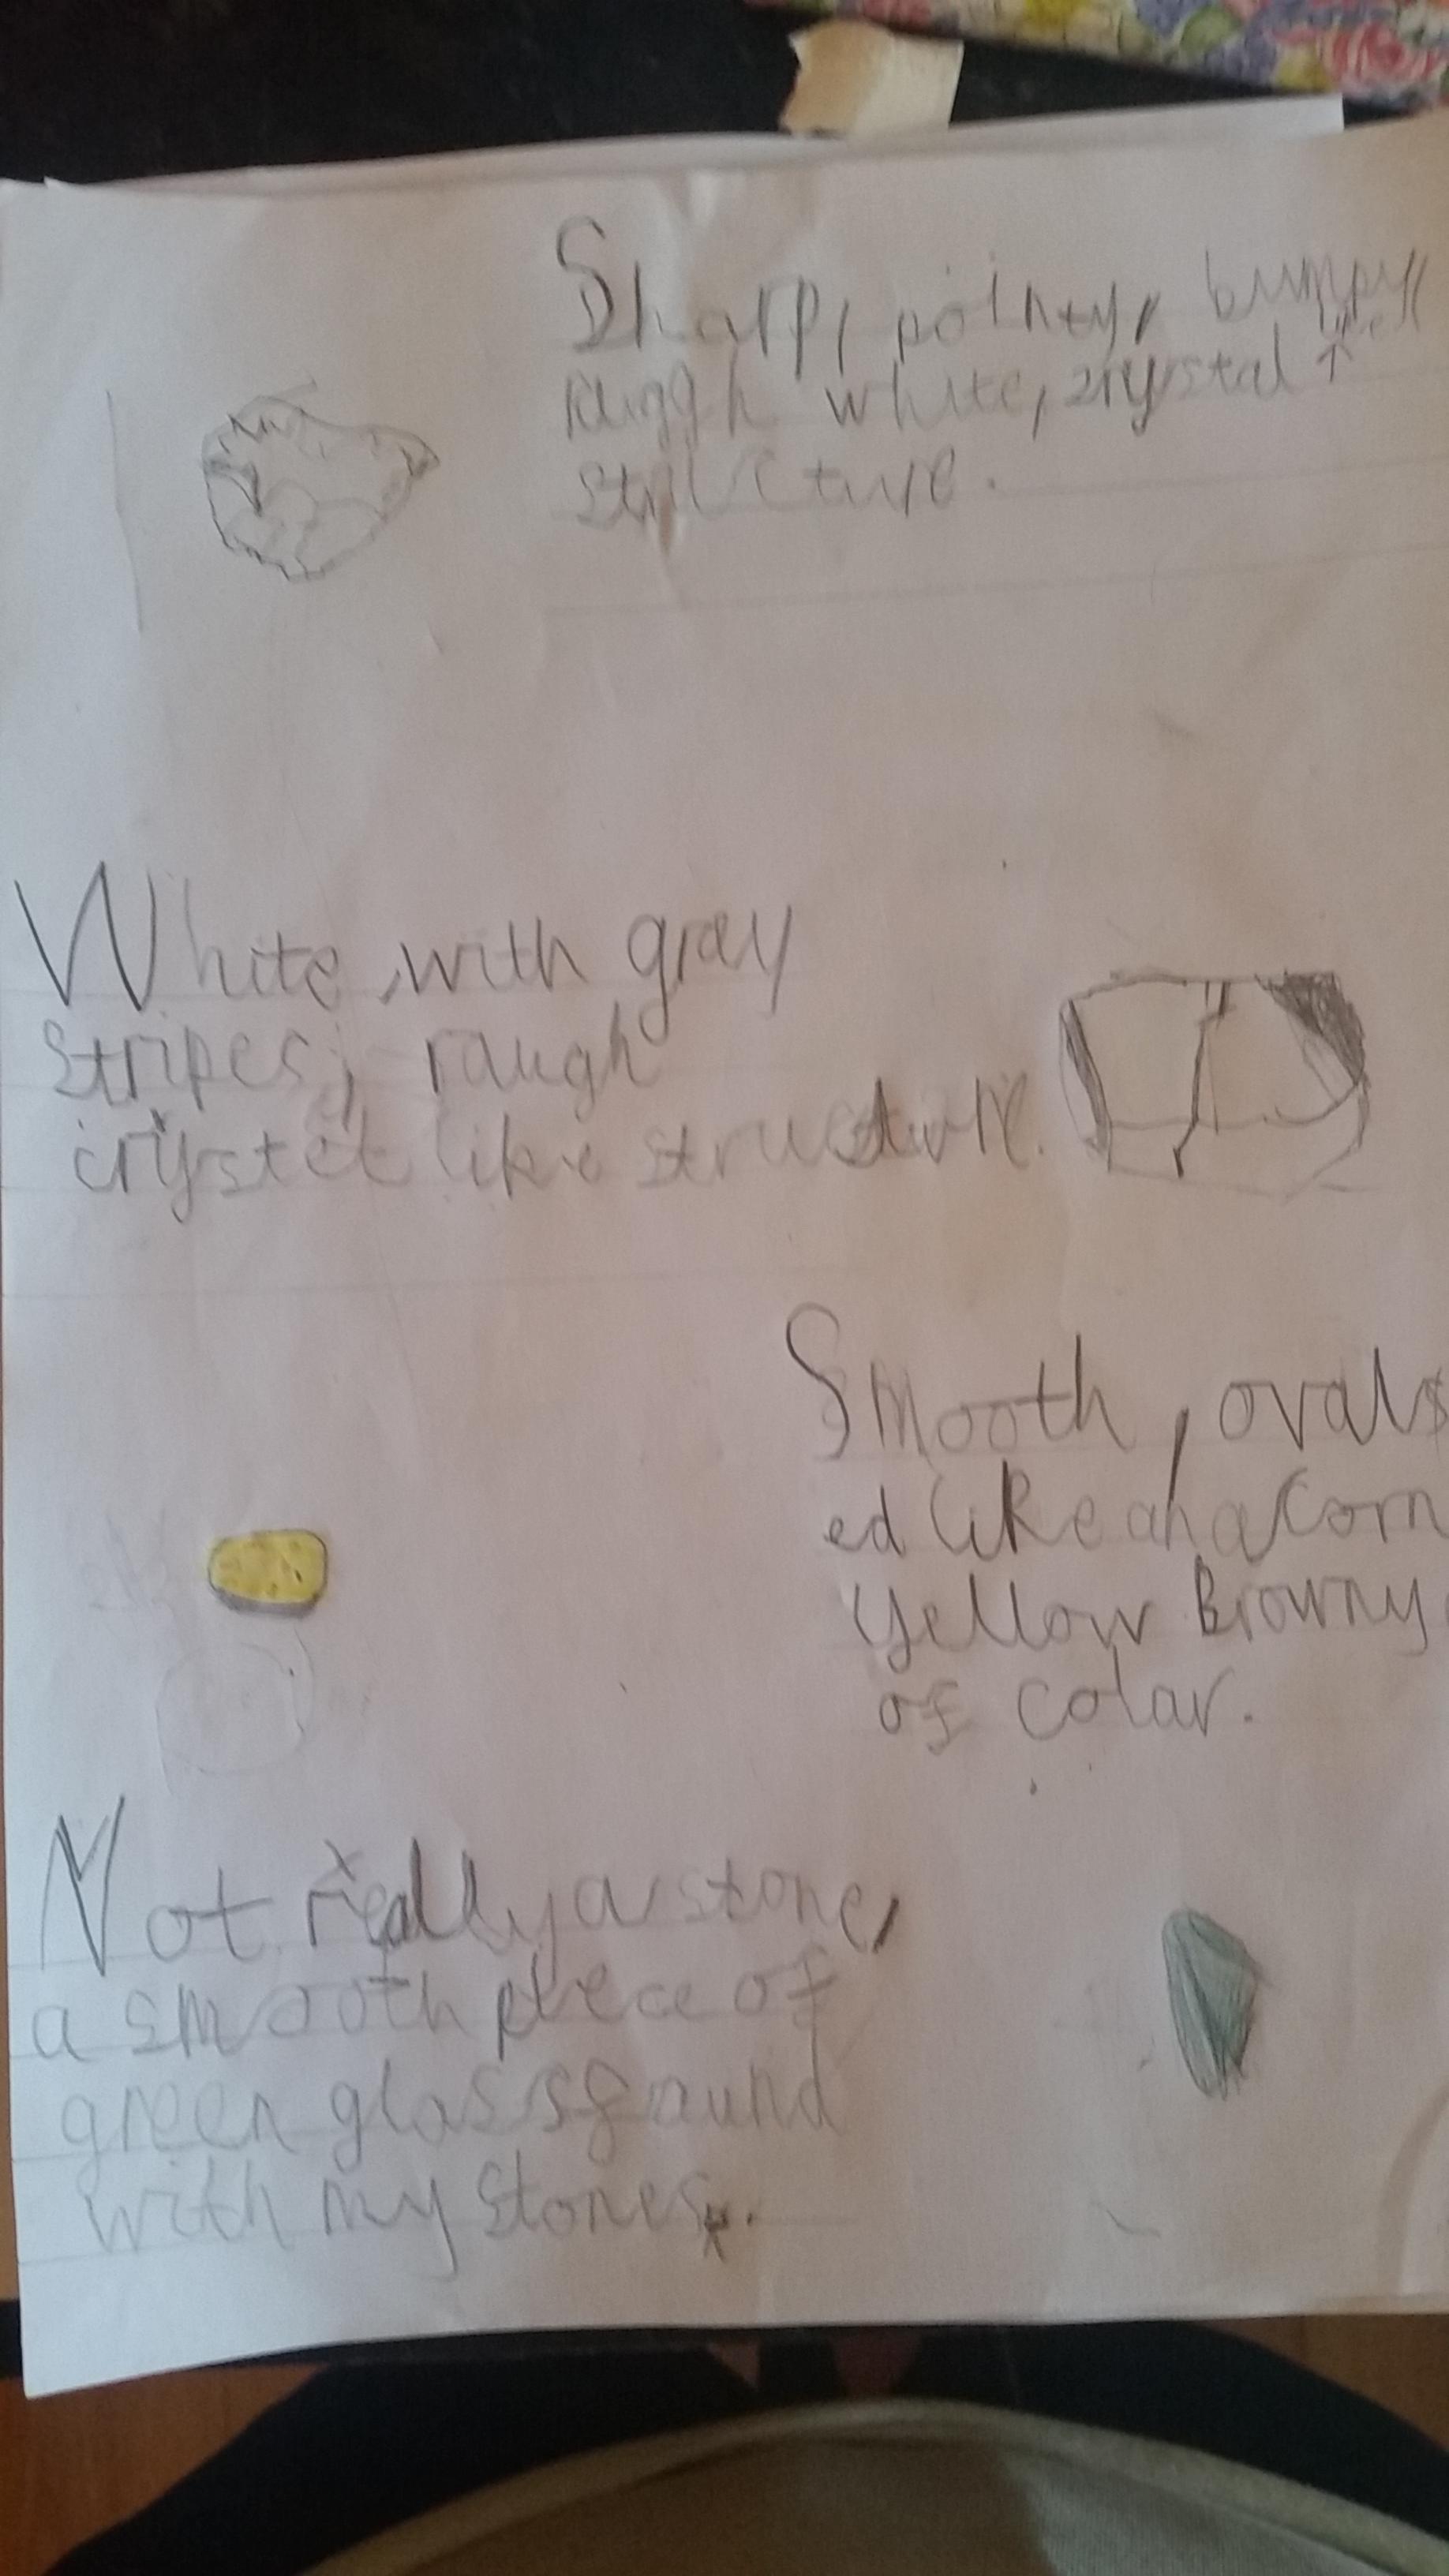 Sharp, pointy, bumpy
rough white, crystal ↑
structure.
White, with gray
stripes, rough
crystel like structure.
Smooth, ovals
ed like an acorn
yellow Browny
of colar.
Not really a stone,
a smooth piece of
green glass found
with my stones.